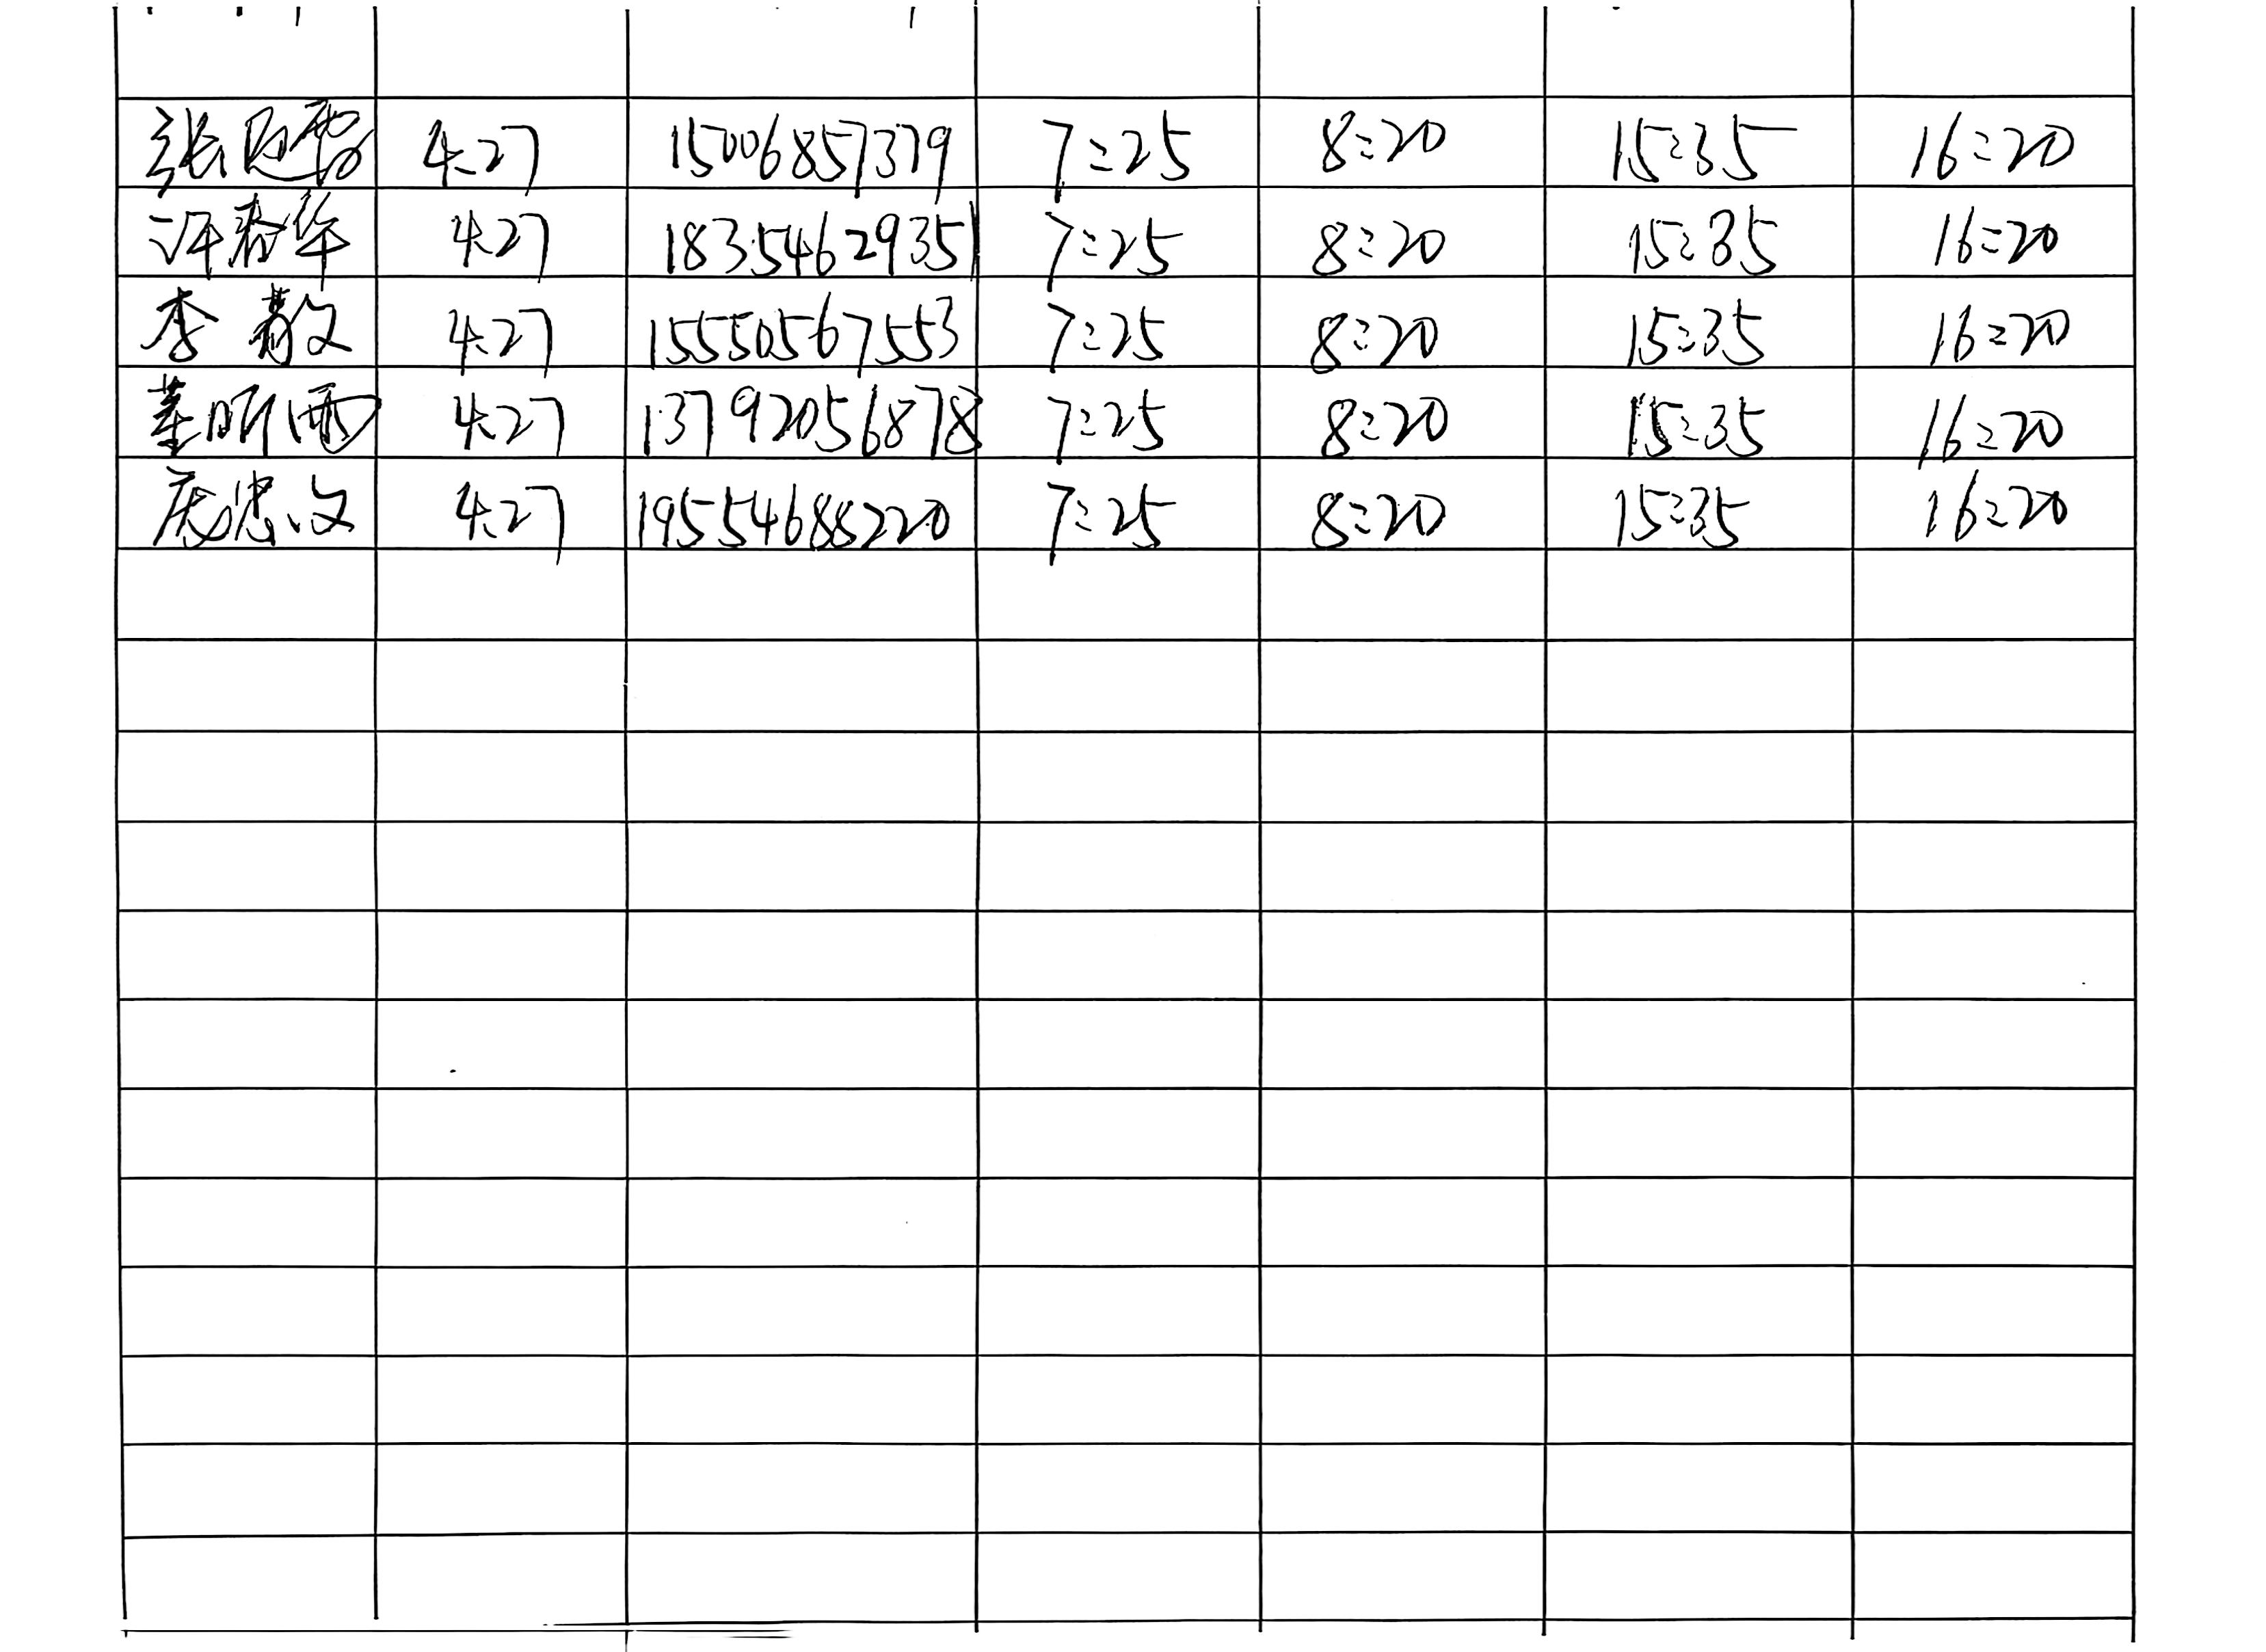 张 4.27 15006857379 7:25 8:20 15:35 16:20
许春华 4.27 18354629351 7:25 8:20 15:35 16:20
李敬文 4.27 15550567553 7:25 8:20 15:35 16:20
董昕雨 4.27 13792056878 7:25 8:20 15:35 16:20
庞忠文 4.27 19554688220 7:25 8:20 15:35 16:20